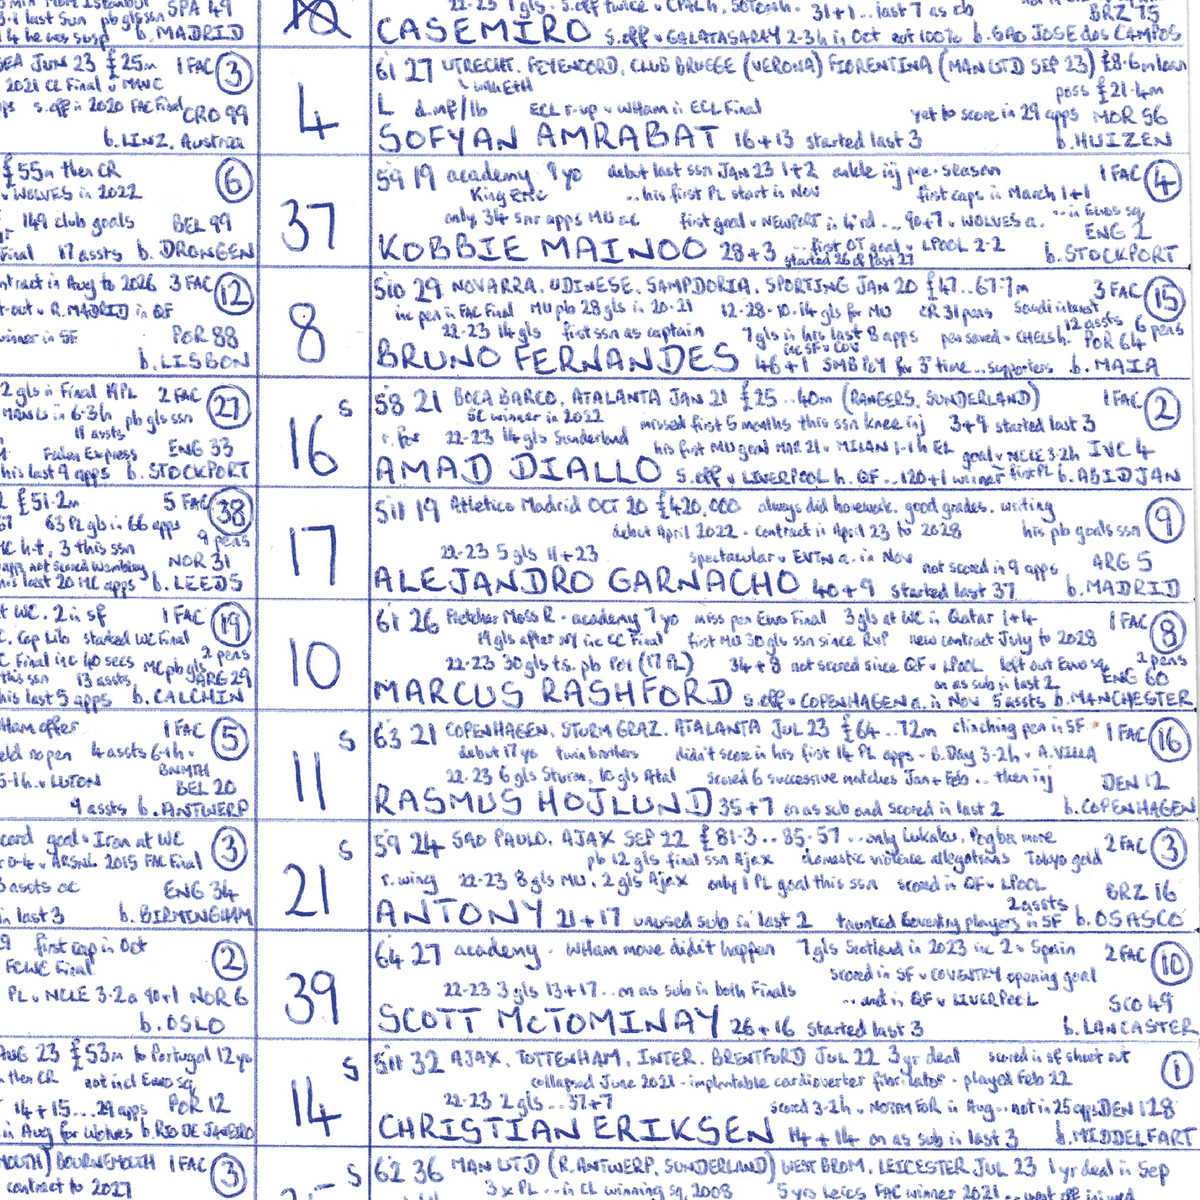 22-23 7 gls. s.off twice v CPAL h, SOTON h. 31+1... last 7 as cb BRZ 75
CASEMIRO s.off v GALATASARAY 2-3 h in Oct not 100% b. SAO JOSE dos CAMPOS
SPA 49
last Sun pb gls ssn
he was susp b. MADRID
JUN 23 £25m 1 FAC 3
2021 CL Final v MANC
s.off in 2020 FAC Final CRO 99
b. LINZ, Austria
4
61 27 UTRECHT, FEYENOORD, CLUB BRUGGE (VERONA) FIORENTINA (MAN UTD SEP 23) £8.6m loan
with EtH poss £21.4m
L d.mf/lb ECL r-up v WHam in ECL Final yet to score in 29 apps MOR 56
SOFYAN AMRABAT 16+13 started last 3 b. HUIZEN
£55m then CR 6
WOLVES in 2022
149 club goals BEL 99
Final 17 assts b. DRONGEN
37
59 19 academy 9 yo debut last ssn JAN 23 1+2 ankle inj pre-season 1 FAC 4
King Eric ...his first PL start in Nov first caps in March 1+1
only 34 snr apps MU ac first goal v NEWPORT in 4 rd... 90+7 v WOLVES a. ...in Euros sq ENG 2
KOBBIE MAINOO 28+3 ...first OT goal v LPOOL 2-2 b. STOCKPORT
started 26 of last 27
contract in Aug to 2026 3 FAC 12
v R. MADRID in QF
winner in SF POR 88
b. LISBON
8
510 29 NOVARRA, UDINESE, SAMPDORIA, SPORTING JAN 20 £47...67.7m 3 FAC 15
inc pen in FAC Final MU pb 28 gls in 20-21 12-28-10-14 gls for MU CR 31 pens Saudi interest
12 assts 6 pens
22-23 14 gls first ssn as captain 7 gls in his last 8 apps pen saved v CHELS h. POR 64
inc SF v COV
BRUNO FERNANDES 46+1 SMB POY for 3rd time...supporters b. MAIA
2 gls in Final 19 PL 2 FAC 27
in 6-3 h pb gls ssn
11 assts
Fallen Express ENG 33
his last 9 apps b. STOCKPORT
16 S
58 21 BOCA BARCO, ATALANTA JAN 21 £25...40m (RANGERS, SUNDERLAND) 1 FAC 2
SC winner in 2022 missed first 5 months this ssn knee inj 3+9 started last 3
r.for 22-23 14 gls Sunderland his first MU goal MAR 21 v MILAN 1-1 h EL goal v NCLE 3-2 h IVC 4
first PL
AMAD DIALLO s.off v LIVERPOOL h. QF...120+1 winner b. ABIDJAN
£51.2m 5 FAC 38
63 PL gls in 66 apps 9 pens
h-t, 3 this ssn
not scored Wembley NOR 31
his last 20 MC apps b. LEEDS
17
511 19 Atletico Madrid OCT 20 £420,000 always did homework, good grades, writing 9
debut April 2022 - contract in April 23 to 2028 his pb goals ssn
22-23 5 gls 11+23 spectacular v EVTN a. in Nov not scored in 9 apps ARG 5
ALEJANDRO GARNACHO 40+9 started last 37 b. MADRID
WC. 2 in SF 1 FAC 19
Cop Lib started WC Final 2 pens
C Final inc 40 secs MC pb gls
this ssn 13 assts ARG 29
his last 5 apps b. CALCHIN
10
61 26 Fletcher Moss R - academy 7 yo miss pen Euro Final 3 gls at WC in Qatar 1+4 1 FAC 8
19 gls after WC inc CC Final first MU 30 gls ssn since RvP new contract July to 2028 2 pens
22-23 30 gls t.s. pb POY (17 PL) 34+8 not scored since QF v LPOOL left out Euro sq ENG 60
on as sub in last 2
MARCUS RASHFORD s.off v COPENHAGEN a. in Nov 5 assts b. MANCHESTER
WHam offer 1 FAC 5
4 assts 6-1 h
v LUTON BNMTH
BEL 20
9 assts b. ANTWERP
11 S
63 21 COPENHAGEN, STURM GRAZ, ATALANTA JUL 23 £64...72m clinching pen in SF 1 FAC 16
debut 17 yo twin brothers didn't score in his first 14 PL apps - B. Day 3-2 h v A. VILLA
22-23 6 gls Sturm, 10 gls Atal scored 6 successive matches Jan + Feb... then inj DEN 12
RASMUS HOJLUND 35+7 on as sub and scored in last 2 b. COPENHAGEN
goal v Iran at WC 3
v ARSNL 2015 FAC Final
assts ac ENG 34
in last 3 b. BIRMINGHAM
21 S
59 24 SAO PAULO, AJAX SEP 22 £81.3...85.57...only Lukaku, Pogba more 2 FAC 3
pb 12 gls final ssn Ajax domestic violence allegations Tokyo gold
r.wing 22-23 8 gls MU, 2 gls Ajax only 1 PL goal this ssn scored in QF v LPOOL BRZ 16
2 assts
ANTONY 21+17 unused sub in last 2 taunted Coventry players in SF b. OSASCO
first cap in Oct 2
FCWC Final
PL v NCLE 3-2 a 90+1 NOR 6
b. OSLO
39
64 27 academy - WHam move didn't happen 7 gls Scotland in 2023 inc 2 v Spain 2 FAC 10
scored in SF v COVENTRY opening goal
22-23 3 gls 13+17...on as sub in both Finals ...and in QF v LIVERPOOL SCO 49
SCOTT McTOMINAY 26+16 started last 3 b. LANCASTER
AUG 23 £53m to Portugal 12 yo
then CR not incl Euro sq
14+15...29 apps POR 12
in Aug for Wolves b. RIO DE JANEIRO
14 S
511 32 AJAX, TOTTENHAM, INTER, BRENTFORD JUL 22 3 yr deal scored in sf shoot out 1
collapsed June 2021 - implantable cardioverter fibrillator - played Feb 22
22-23 2 gls...37+7 scored 3-2 h v NOTTM FOR in Aug...not in 25 apps DEN 128
CHRISTIAN ERIKSEN 14+14 on as sub in last 3 b. MIDDELFART
BOURNEMOUTH 1 FAC 3
contract to 2027
62 36 MAN UTD (R. ANTWERP, SUNDERLAND) WEST BROM, LEICESTER JUL 23 1 yr deal in Sep
3 x PL...in CL winning sq, 2008 5 yrs Leics FAC winner 2021